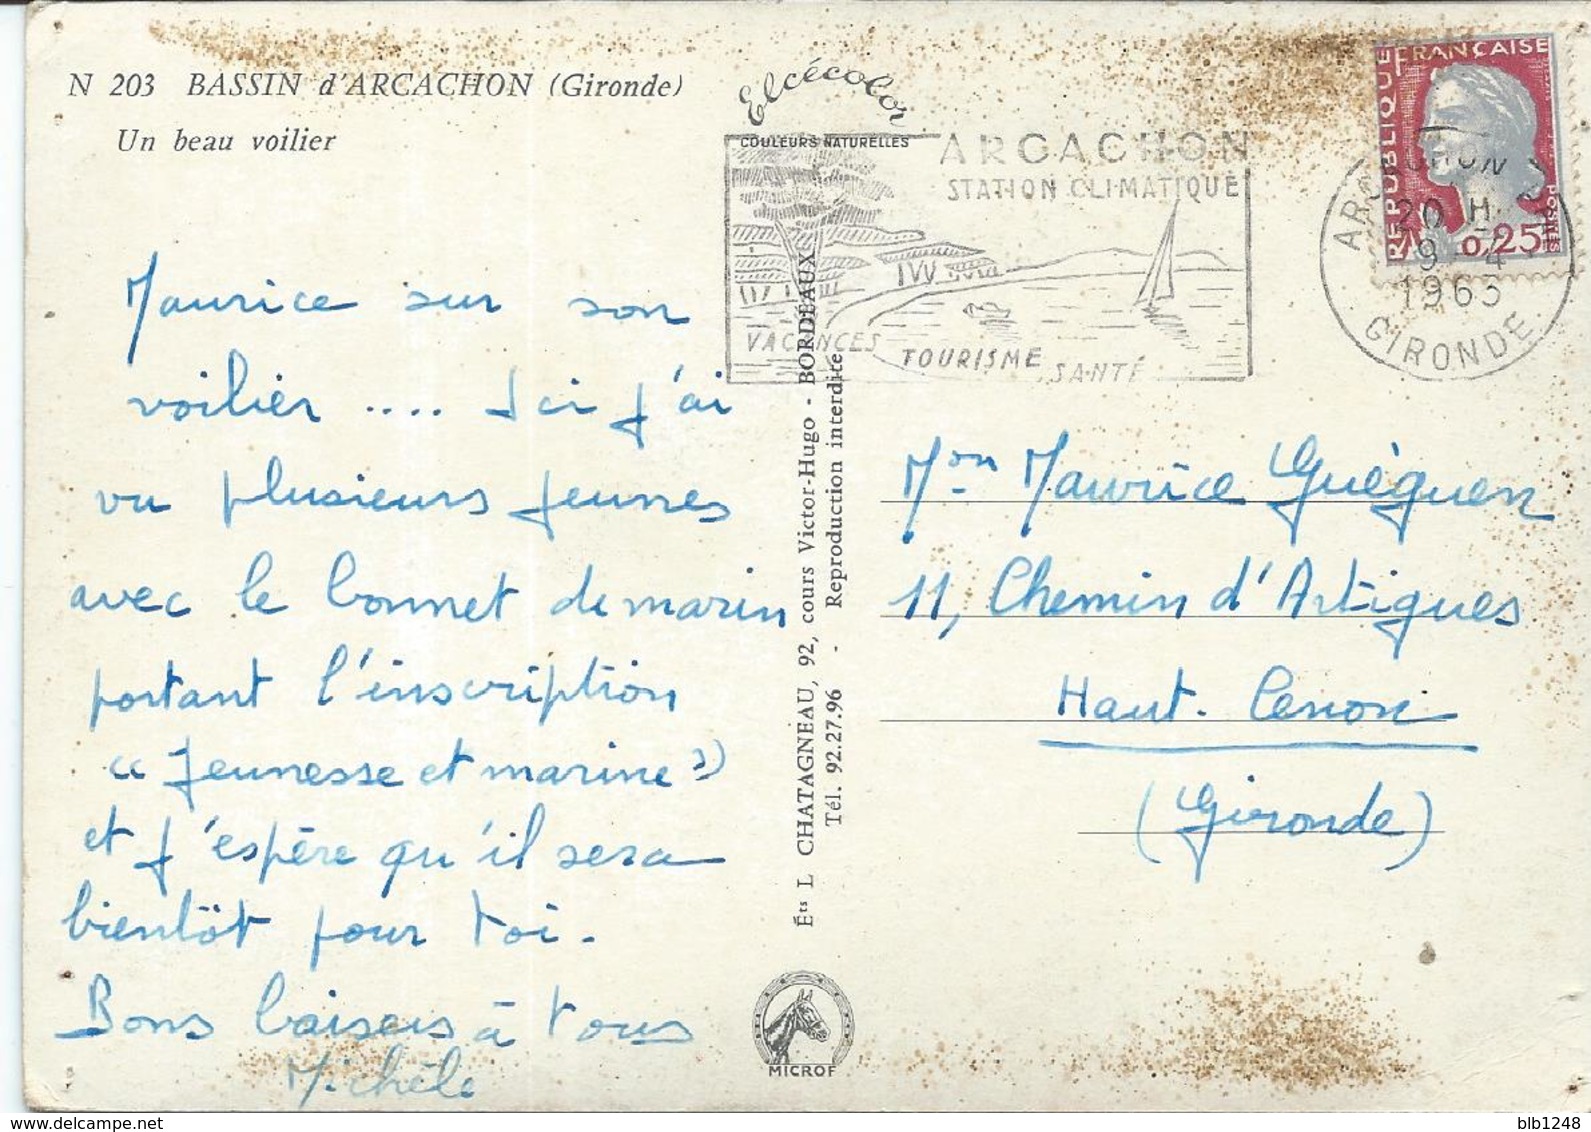 N 203 BASSIN d'ARCACHON (Gironde)
Un beau voilier
Elcécolor
COULEURS NATURELLES
ARCACHON
STATION CLIMATIQUE
VACANCES
TOURISME
SANTÉ
RÉPUBLIQUE
FRANÇAISE
POSTES
0,25
ARCACHON
20 H
9 - 4
1963
GIRONDE
Maurice sur son
voilier .... Ici j'ai
vu plusieurs jeunes
avec le bonnet de marin
portant l'inscription
"Jeunesse et marine"
et j'espère qu'il sera
bientôt pour toi.
Bons baisers à tous
Michèle
Éts L CHATAGNEAU, 92, cours Victor-Hugo - BORDEAUX
Tél. 92.27.96 - Reproduction interdite
MICROF
Mon Maurice Guéguen
11, Chemin d'Artigues
Haut-Cenon
(Gironde)
blb1248